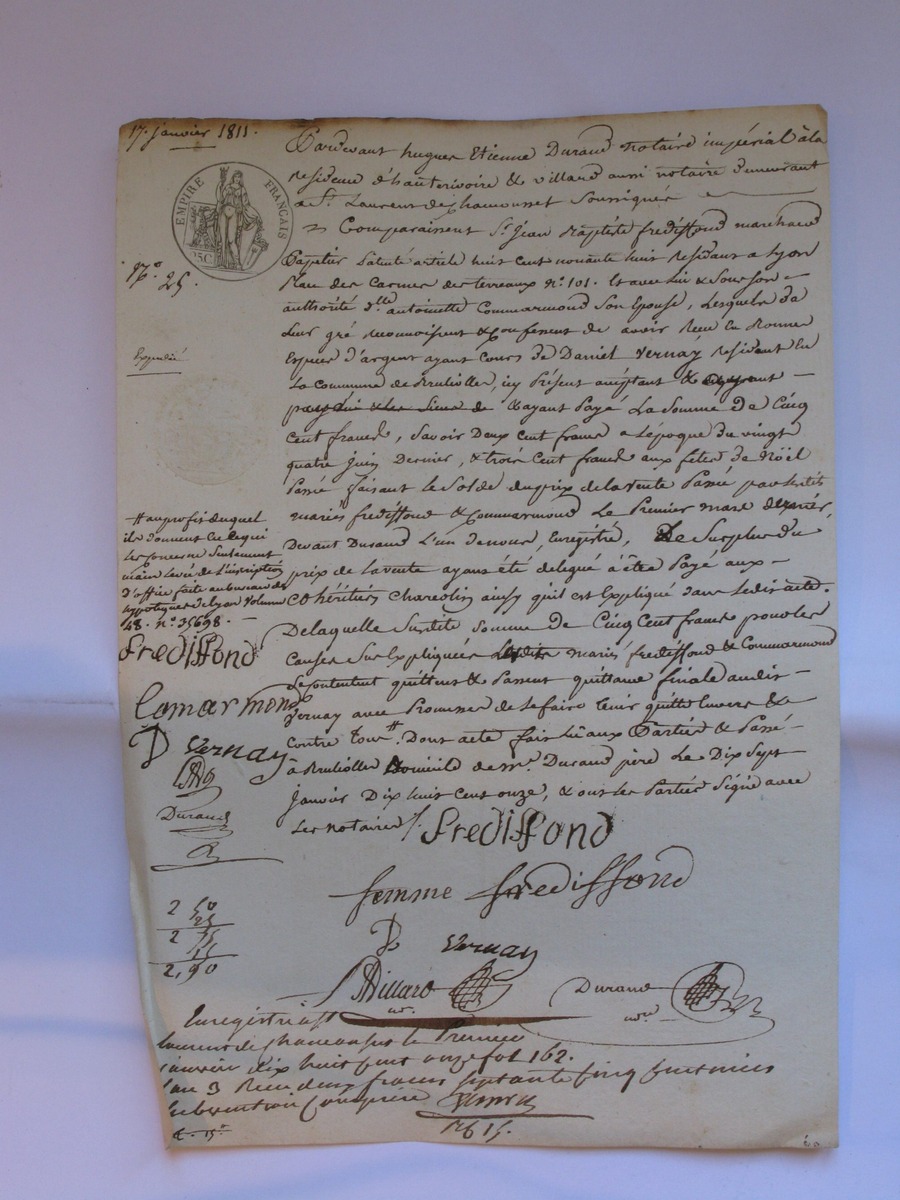 17. janvier 1811.
EMPIRE FRANÇAIS
25C
Pardevant hugues Etienne Durand Notaire impérial à la
Residence d'hauterivoire & villard aussi notaire demeurant
a St. Laurent de chamousset Soussignés
Comparaissent Sr. jean Baptiste fredissond marchand
Papetier Patenté article huit cent nonante huit Residant a Lyon
Place des Carmes des terreaux no. 101. Et avec lui & de son
authorité dlle antoinette Commarmond Son Epouse, Lesquels de
Leur gré reconnoissent & confessent de avoir Recu En Bonnes
Especes d'argent ayant Cours de Daniel Vernay Resident En
La Commune de Brulliolles, icy Présent acceptant &
& ayant Payé La Somme De Cinq
Cent francs, Savoir Deux Cent francs a L'époque du vingt
quatre juin Dernier, & trois Cent francs aux fêtes de Noël
Passé faisant le Solde du prix de la vente Passé par lesdits
mariés fredissond & Commarmond Le Premier mars dernier,
Devant Durand L'un de nous, Enregistré, Le Surplus du
prix de la vente ayant été delegué à être Payé aux
Cohéritiers Chareolin ainsy qu'il est Expliqué dans ledit acte.
De laquelle Susdite Somme de Cinq Cent francs pour les
Causes Sus Expliquées Lesdits mariés fredissond & Commarmond
Se contentent quittent & Passent quittance finale audit
Vernay avec Promesse de le faire tenir quitte Envers &
Contre tous #. Dont acte fait Lu aux Parties & Passé
à Brulliolles Domicile de Mr. Durand père Le Dix Sept
janvier Dix huit Cent onze, & ont les Parties Signé avec
Les notaires /.
No. 25.
Expedié
# au profit duquel
ils donnent en ce qui
les concerne Seulement
main Levée de L'inscription
d'office faite au bureau des
hypotèques de Lyon Volume
48. no. 35698.
Fredissond
Comarmond
D Vernay
Durand
Fredissond
femme fredissond
D Vernay
Villard
nre.
Durand
nre.
2 50
25
2 75
15
2,90
Enregistré a St
Laurent de chamousset le Premier
janvier dix huit cent onze fol 162.
Case 3 Recu deux francs septante cinq centimes
Subvention comprise